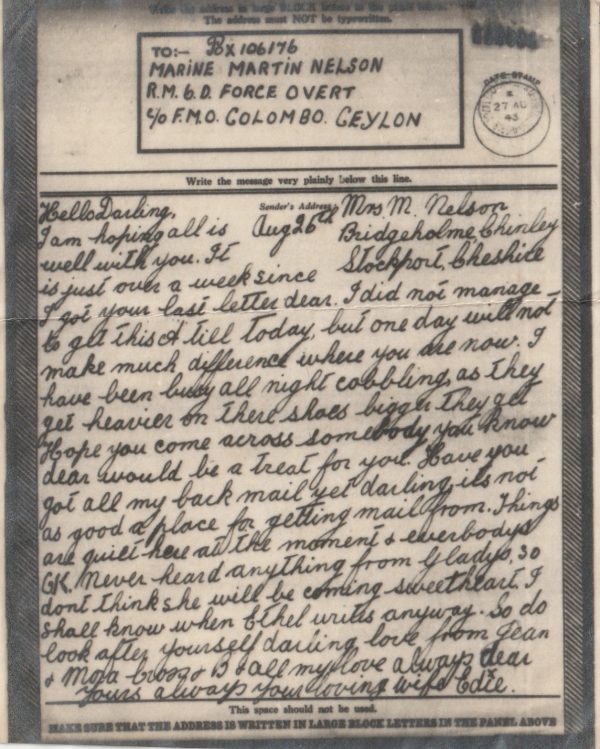 Write the address in large BLOCK letters in the panel
The address must NOT be typewritten.
TO:— Px 106176
MARINE MARTIN NELSON
R.M. 6.D. FORCE OVERT
c/o F.M.O. COLOMBO. CEYLON
DATE STAMP
27 AU
43
Write the message very plainly below this line.
Sender's Address
Mrs M. Nelson
Bridgeholme, Chinley
Stockport, Cheshire
Aug 26th
Hello Darling,
I am hoping all is
well with you. It
is just over a week since
I got your last letter dear. I did not manage
to get this A till today, but one day will not
make much difference where you are now. I
have been busy all night cobbling, as they
get heavier on there shoes bigger they get
Hope you come across somebody you know
dear would be a treat for you. Have you
got all my back mail yet darling, its not
as good a place for getting mail from. Things
are quiet here at the moment & everbodys
OK. Never heard anything from Gladys, so
dont think she will be coming sweetheart. I
shall know when Ethel writes anyway. So do
look after yourself darling, love from Jean
& Mora & B & all my love always dear
Yours always your loving wife Edie.
This space should not be used.
MAKE SURE THAT THE ADDRESS IS WRITTEN IN LARGE BLOCK LETTERS IN THE PANEL ABOVE